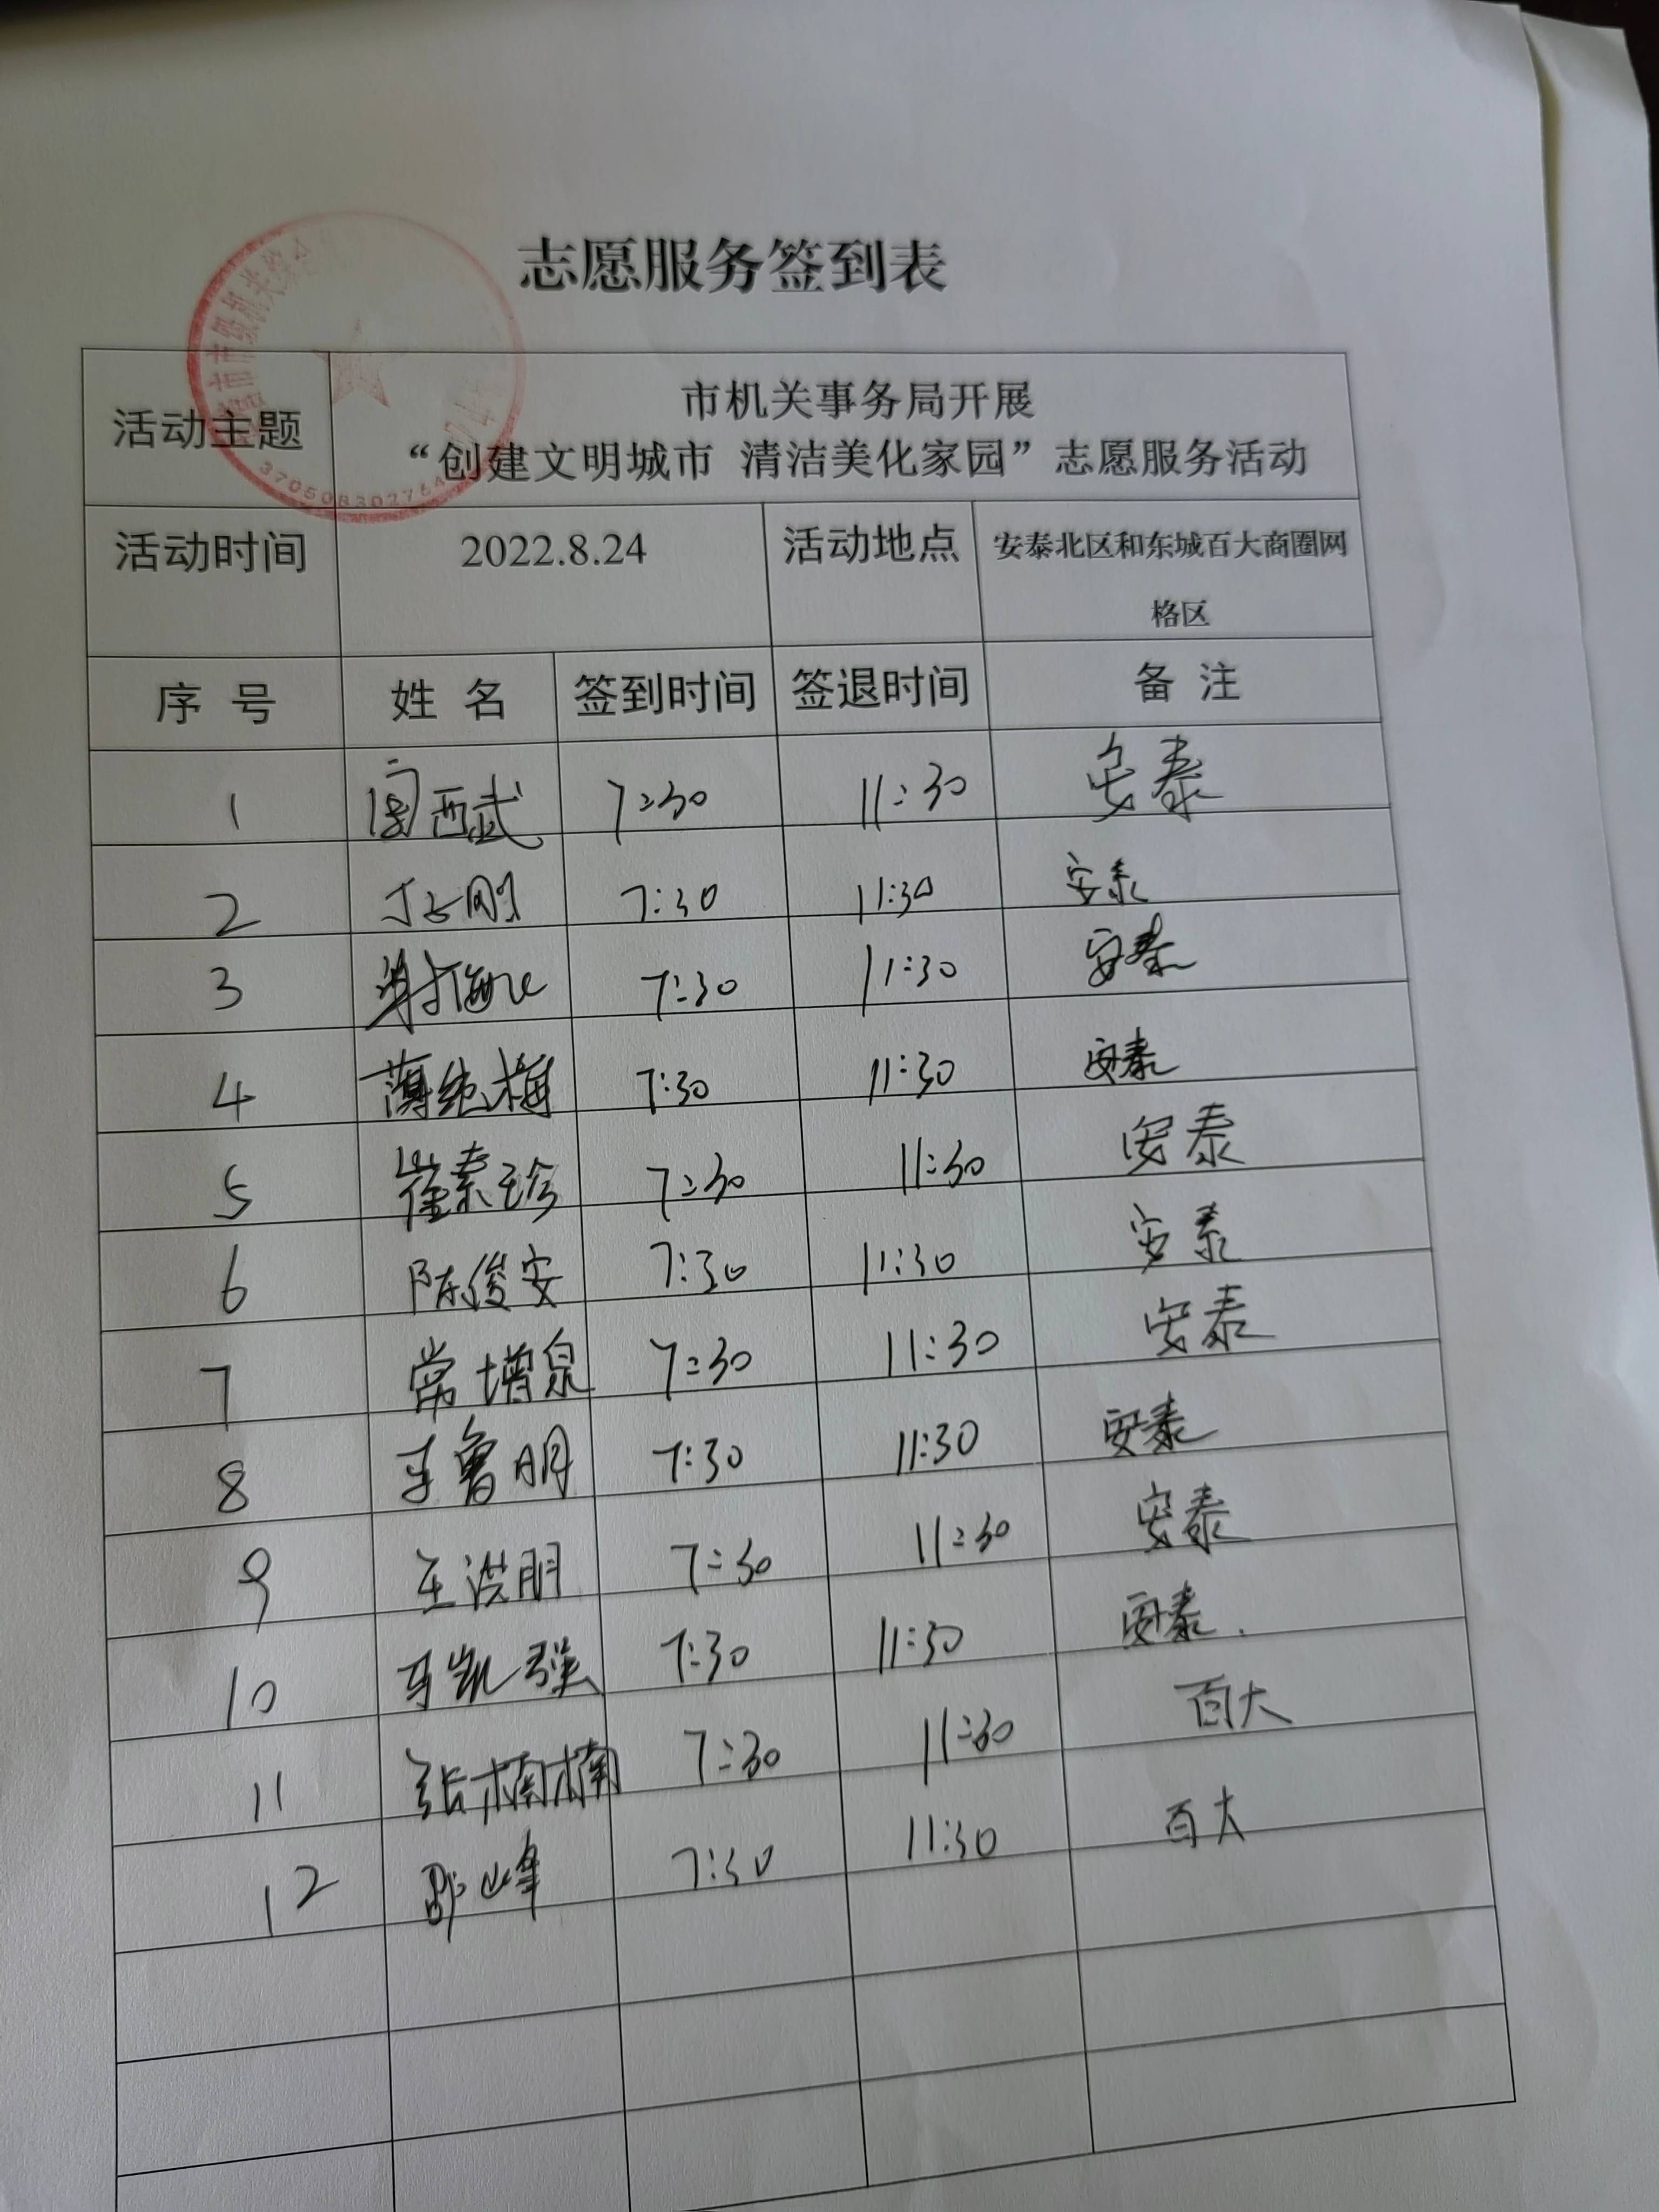 志愿服务签到表
活动主题
市机关事务局开展
“创建文明城市 清洁美化家园”志愿服务活动
活动时间 2022.8.24 活动地点 安泰北区和东城百大商圈网
格区
序 号 姓 名 签到时间 签退时间 备 注
1 西武 7:30 11:30 安泰
2 刚 7:30 11:30 安泰
3 7:30 11:30 安泰
4 薄纯梅 7:30 11:30 安泰
5 崔素珍 7:30 11:30 安泰
6 陈俊安 7:30 11:30 安泰
7 常增泉 7:30 11:30 安泰
8 鲁明 7:30 11:30 安泰
9 王洪朋 7:30 11:30 安泰
10 凯强 7:30 11:30 安泰.
11 张楠楠 7:30 11:30 百大
12 峰 7:30 11:30 百大